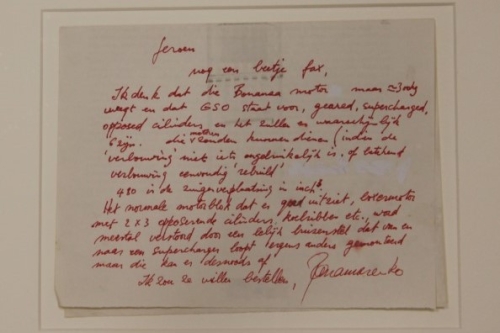 Jeroen
nog een beetje fax,
Ik denk dat die Bonanza motor maar ≈ 300kg
weegt en dat GSO staat voor, geared, supercharged,
opposed cilinders, en het zullen er waarschijnlijk
6 zijn. die motoren zouden kunnen dienen (indien de
verbouwing niet iets ingewikkelijk is. of
verbouwing eenvoudig "rebuild"
480 is de zuigerverplaatsing in inch³
Het normale motorblok dat er goed uitziet, boxermotor
met 2 x 3 opposerende cilinders, koelribben etc., word
meestal verstoord door een lelijk buizenstel dat van en
naar een supercharger loopt ergens anders gemonteerd
maar die kan er desnoods af.
Ik zou ze willen bestellen, Panamarenko